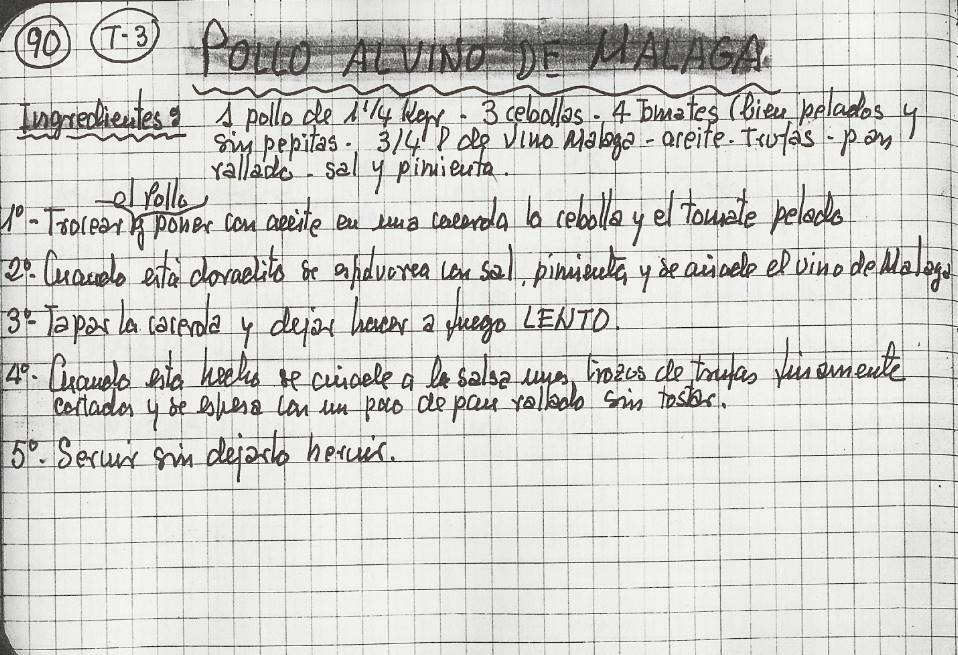 90 T-3 POLLO AL VINO DE MALAGA
Ingredientes: 1 pollo de 1'1/4 kgr - 3 cebollas - 4 Tomates (bien pelados y
sin pepitas - 3/4 l de vino Malaga - aceite - Trufas - pan
rallado - sal y pimienta.
el Pollo
1º - Trocear y poner con aceite en una cacerola la cebolla y el tomate pelado
2º - Cuando está doradito se espolvorea con sal, pimienta, y se añade el vino de Malaga
3º - Tapar la cacerola y dejar hacer a fuego LENTO.
4º - Cuando esta hecho se añade a la salsa unos trozos de trufas finamente
cortados y se espesa con un poco de pan rallado sin tostar.
5º - Servir sin dejarlo hervir.